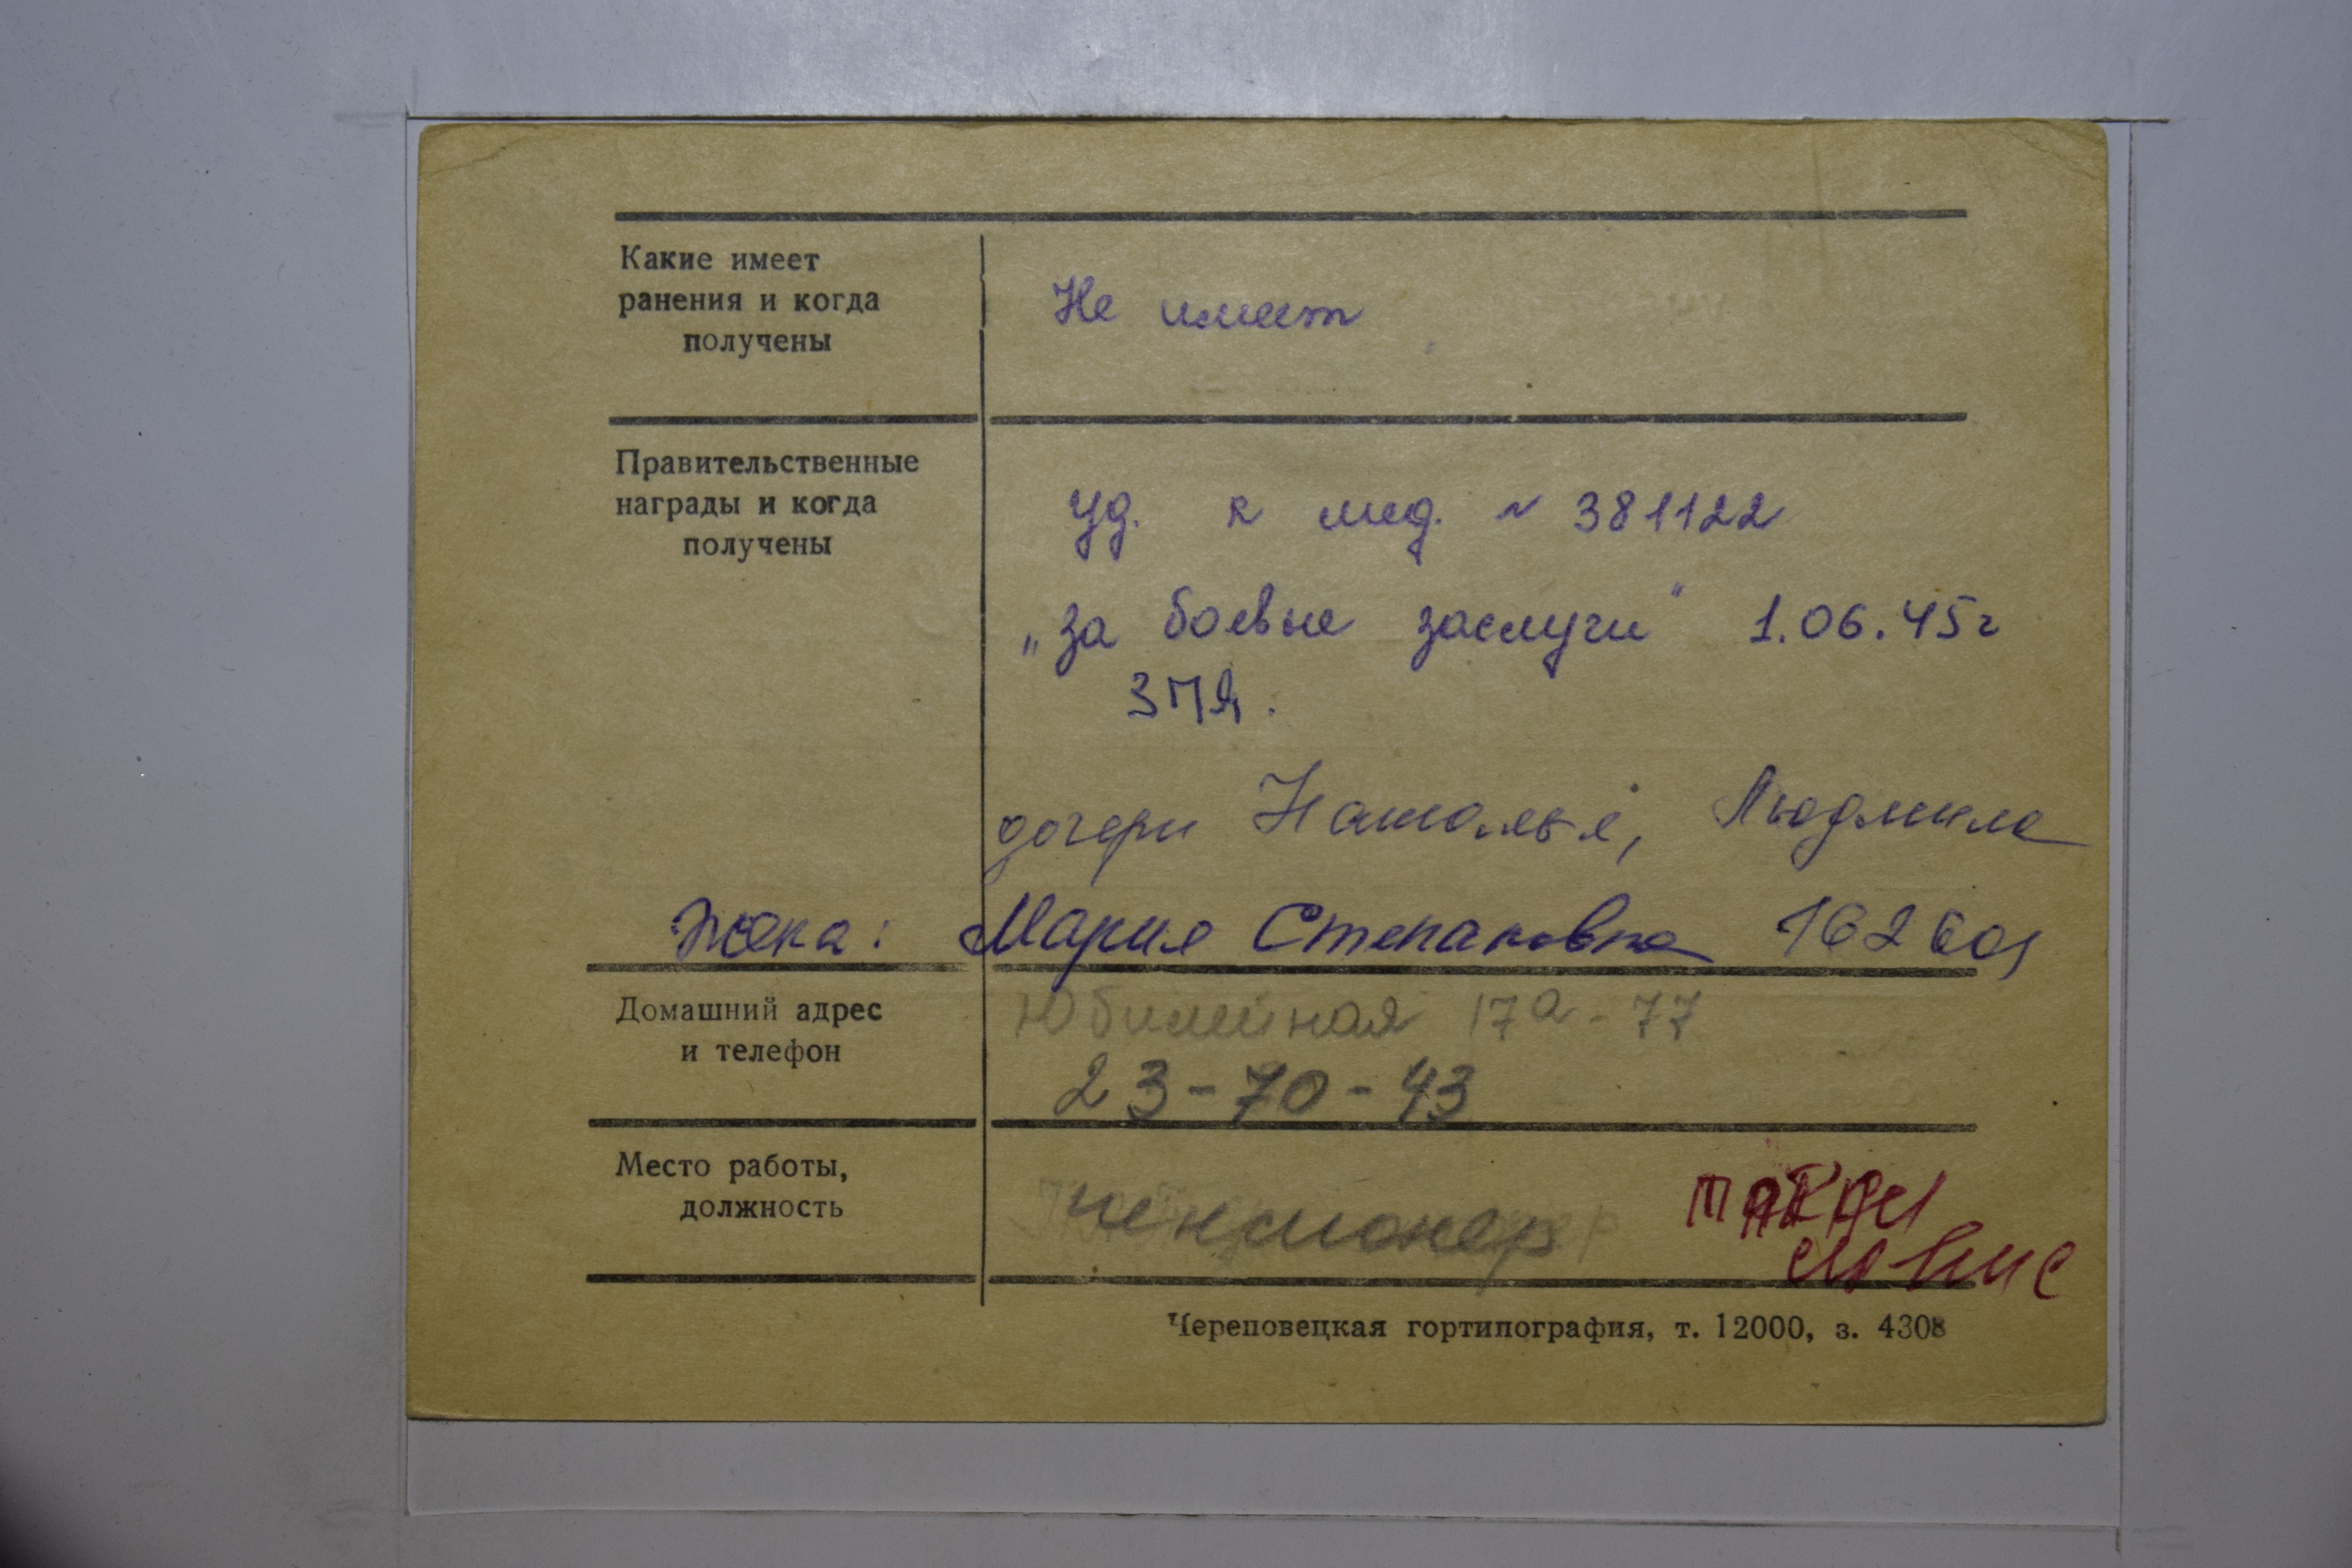 Какие имеет
ранения и когда
получены
Не имеет
Правительственные
награды и когда
получены
Уд. к мед. № 381122
„за боевые заслуги" 1.06.45г
ЗПЯ.
дочери Наталья, Людмила
Жена: Мария Степановна 162601
Домашний адрес
и телефон
Юбилейная 17а-77
23-70-43
Место работы,
должность
пенсионер
Череповецкая гортипография, т. 12000, з. 4308